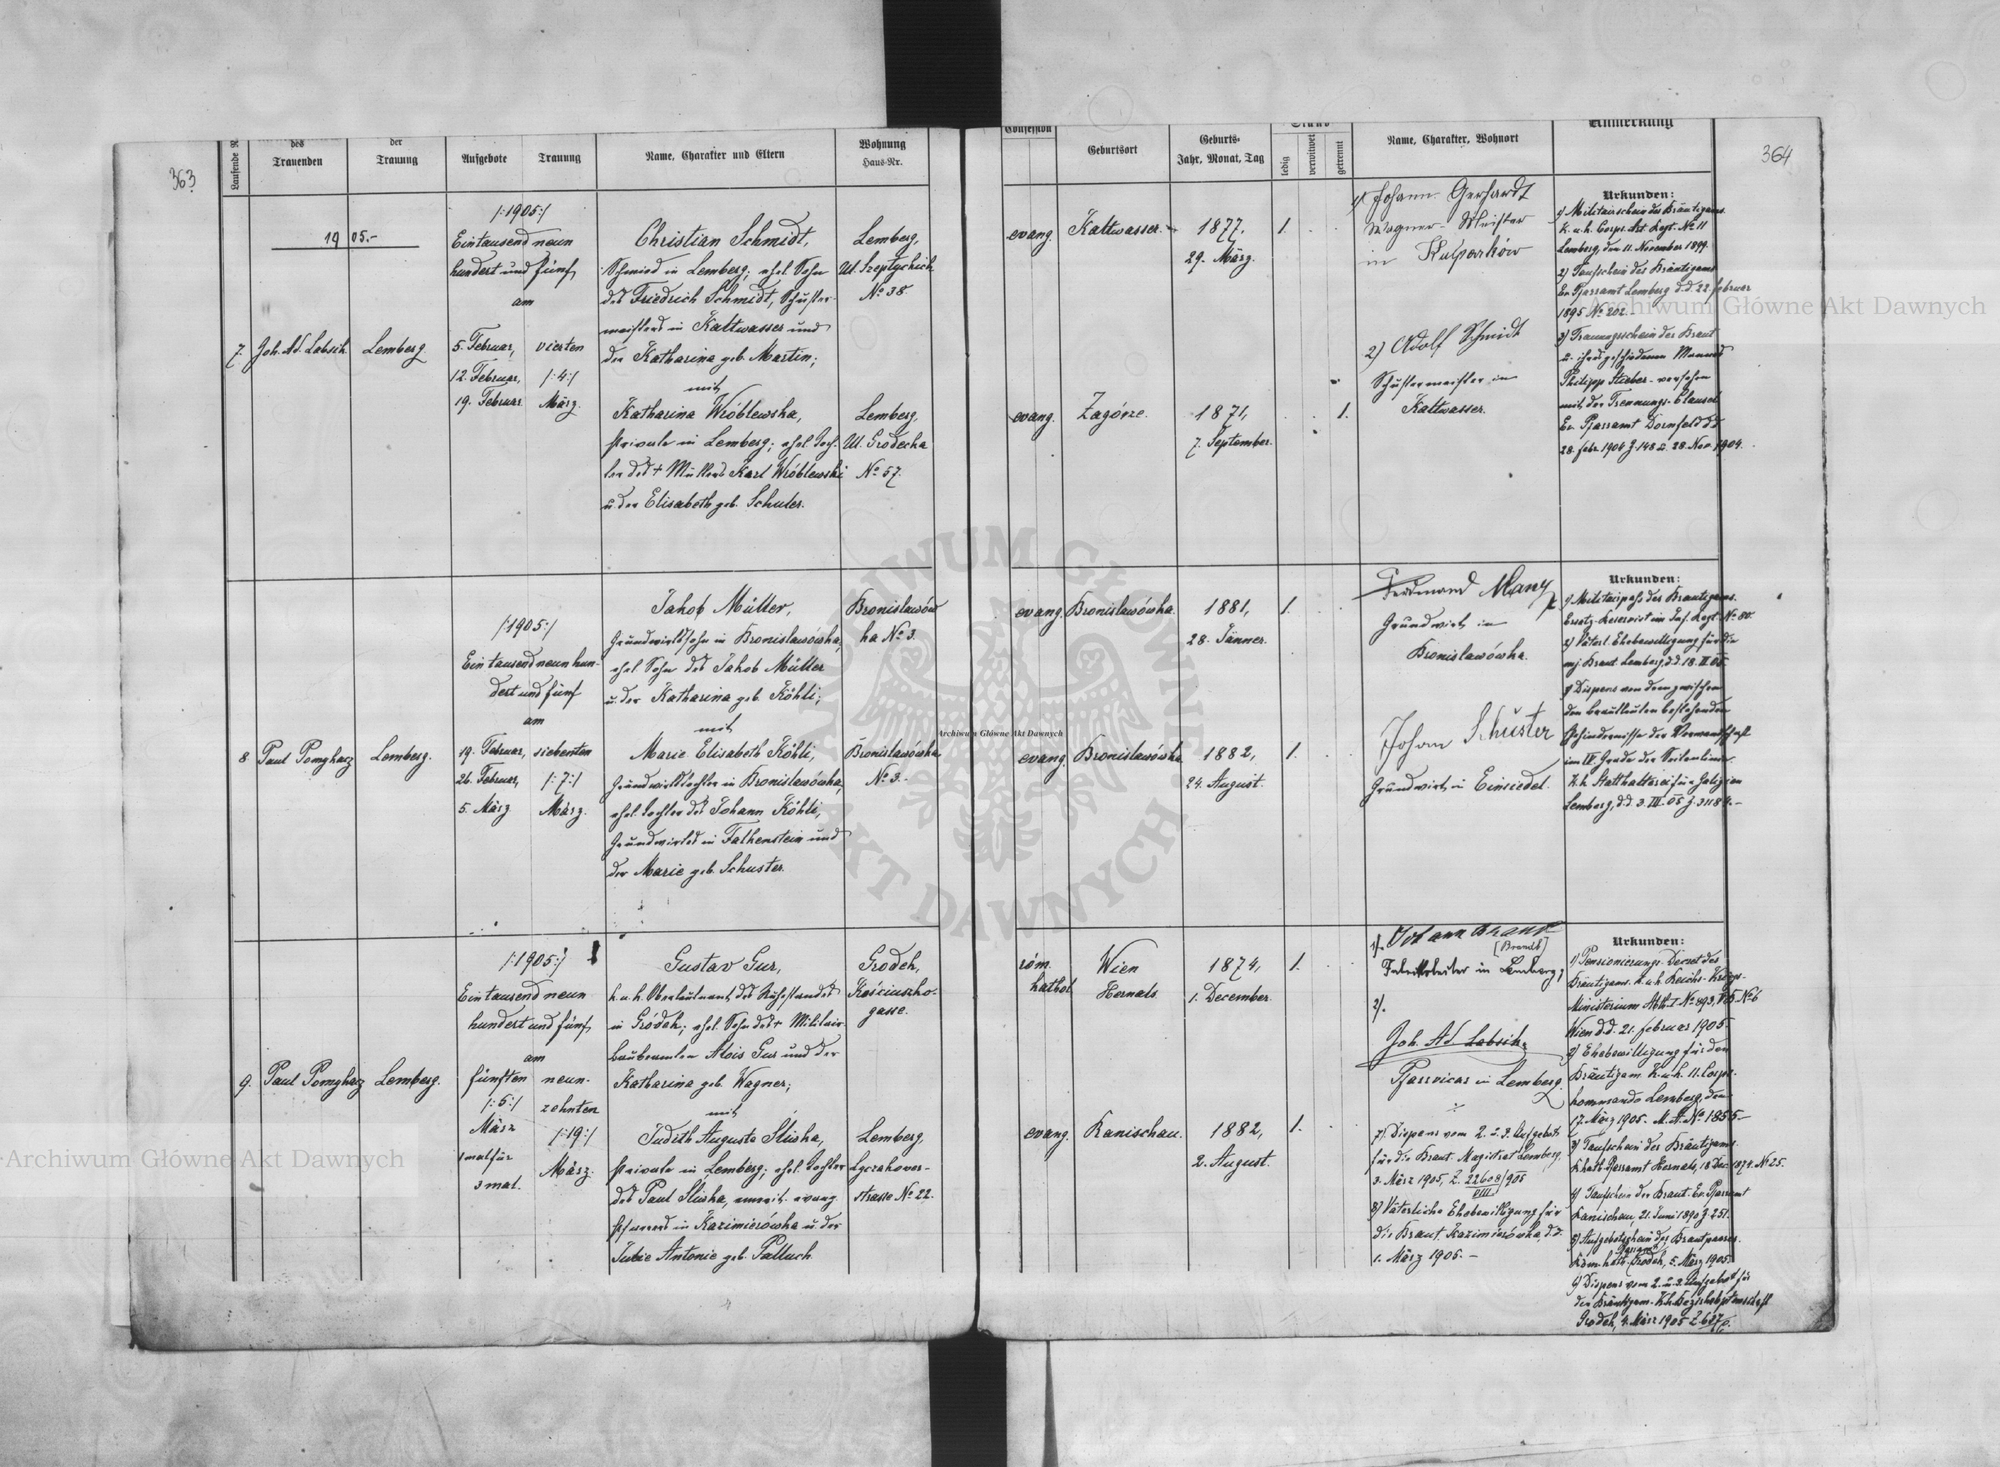 363
364
Laufende N.
des Trauenden
der Trauung
Aufgebote
Trauung
Name, Charakter und Eltern
Wohnung
Haus-Nr.
Confession
Geburtsort
Geburts-
Jahr, Monat, Tag
Stand
ledig
verwitwet
getrennt
Name, Charakter, Wohnort
Anmerkung
1905.-
7.
Joh. Ad. Labsik
Lemberg
/:1905:/
Eintausend neun
hundert und fünf
am
5. Februar,
12. Februar,
19. Februar
vierten
/:4:/
März.
Christian Schmidt,
Schmied in Lemberg; ehel. Sohn
des Friedrich Schmidt, Schuster-
meisters in Kaltwasser und
der Katharina geb. Martin;
mit
Katharina Wróblewska,
Private in Lemberg; ehel. Toch-
ter des + Müllers Karl Wróblewski
u. der Elisabeth geb. Schuler.
Lemberg,
Ul. Szeptyckich
No 38.
Lemberg,
Ul. Grodecka
No 57.
evang.
Kaltwasser.
1877,
29. März.
1.
evang.
Zagórze.
1871,
7. September.
1.
1) Johann Gerhardt
Wagner-Meister
in Kulparków
2) Adolf Schmidt
Schustermeister in
Kaltwasser.
Urkunden:
1) Militairschein des Bräutigams.
K. u. k. Corps. Art. Regt. No 11
Lemberg, den 11. November 1899.
2) Taufschein des Bräutigams
Ev. Pfarramt Lemberg d.d. 22. Februar
1895 No 202.
3) Trauungsschein der Braut
u. ihres geschiedenen Mannes
Philipp Stieber - versehen
mit der Trennungs-Clausel
Ev. Pfarramt Dornfeld dd
28. Febr. 1904 Z. 148 u. 28. Nov. 1904.
8
Paul Pomykacz
Lemberg.
/:1905:/
Ein tausend neun hun-
dert und fünf
am
19. Februar,
26. Februar,
5. März
siebenten
/:7:/
März.
Jakob Müller,
Grundwirtssohn in Bronislawówka,
ehel. Sohn des Jakob Müller
u. der Katharina geb. Köhli;
mit
Marie Elisabeth Köhli,
Grundwirtstochter in Bronislawówka,
ehel. Tochter des Johann Köhli,
Grundwirtes in Falkenstein und
der Marie geb. Schuster.
Bronislawów
ka No 3.
Bronislawówka
No 3.
evang.
Bronislawówka.
1881,
28. Jänner.
1.
evang.
Bronislawówka
1882,
24. August.
1.
Ferdinand Manz
Grundwirt in
Bronislawówka.
Johann Schuster
Grundwirt in Einsiedel.
Urkunden:
1) Militairpass des Bräutigams.
Ersatz-Reservist im Inf. Regt. No 80.
2) Väterl. Ehebewilligung für die
mj. Braut Lemberg, d.d. 18. II. 05.
3) Dispens von dem zwischen
den Brautleuten bestehenden
Hindernisse der Verwandschaft
im IV. Grade der Seitenlinie.
K.k. Statthalterei für Galizien
Lemberg, d.d. 3. III. 05 Z. 31184.-
9.
Paul Pomykacz
Lemberg.
/:1905:/
Ein tausend neun
hundert und fünf
am
fünften
/:5:/
März
1 mal für
3 mal.
neun-
zehnten
/:19:/
März.
Gustav Gur,
k. u. k. Oberleutnant des Ruhestandes
in Gródek; ehel. Sohn des + Militair-
baubeamten Alois Gur und der
Katharina geb. Wagner;
mit
Judith Auguste Sliska,
Private in Lemberg; ehel. Tochter
des Paul Sliska, emerit. evang.
Pfarrers in Kazimierówka u. der
Julie Antonie geb. Palluch
Grodek,
Kościuszko-
gasse.
Lemberg,
Lyczakover-
strasse No 22.
röm.
kathol.
Wien
Hernals
1874,
1. December.
1.
evang.
Ranischau.
1882,
2. August.
1.
1). Johann Brand
[Brandt]
Fabriksleiter in Lemberg;
2).
Joh. Ad. Labsik
Pfarrvicar in Lemberg.
7). Dispens vom 2. u. 3. Aufgebote
für die Braut. Magistrat Lemberg
3. März 1905, Z. 22608/905
VIII.
8) Väterliche Ehebewilligung für
die Braut. Kazimierówka, d.d.
1. März 1905. -
Urkunden:
1) Pensionierungs-Decret des
Bräutigams. K.u.k. Reichs-Kriegs-
Ministerium
Wien d.d. 21. Februar 1905.
2) Ehebewilligung für den
Bräutigam. K.u.k. 11. Corps-
kommando Lemberg, den
17. März 1905. M.A. No 1855-
3) Taufschein des Bräutigams.
kath. Pfarramt Hernals, 18 Dec. 1874. No 25.
4) Taufschein der Braut. Ev. Pfarramt
Ranischau, 21. Juni 1890 Z. 251.
5) Aufgebotschein des Brautpaares.
Röm. kath. Grodek, 5. März 1905.
6) Dispens vom 2. u. 3. Aufgebot für
den Bräutigam. K.k. Bezirkshptmschaft
Grodek, 4. März 1905
Archiwum Główne Akt Dawnych
Archiwum Główne Akt Dawnych
Archiwum Główne Akt Dawnych
ARCHIWUM GŁÓWNE AKT DAWNYCH